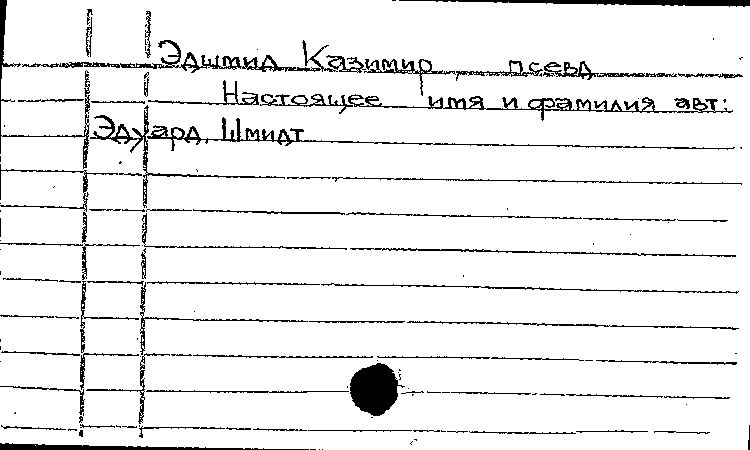 Эдшмид Казимир, псевд
Настоящее имя и фамилия авт:
Эдуард Шмидт